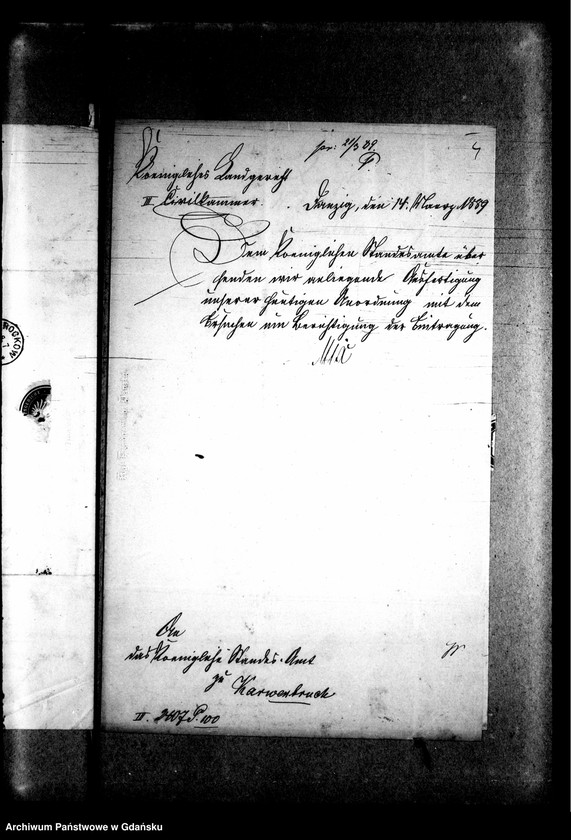 pr. 21/3 89
4
Koenigliches Landgericht
II Civilkammer.
Danzig, den 14. Maerz 1889
Dem Koeniglichen Standesamte über
senden wir anliegende Ausfertigung
unserer heutigen Anordnung mit dem
Ersuchen um Berichtigung der Eintragung.
Mix
ROCKOW
An
das Koenigliche Standes-Amt
zu Karwenbruch
II. 3607 P. 100
Archiwum Państwowe w Gdańsku